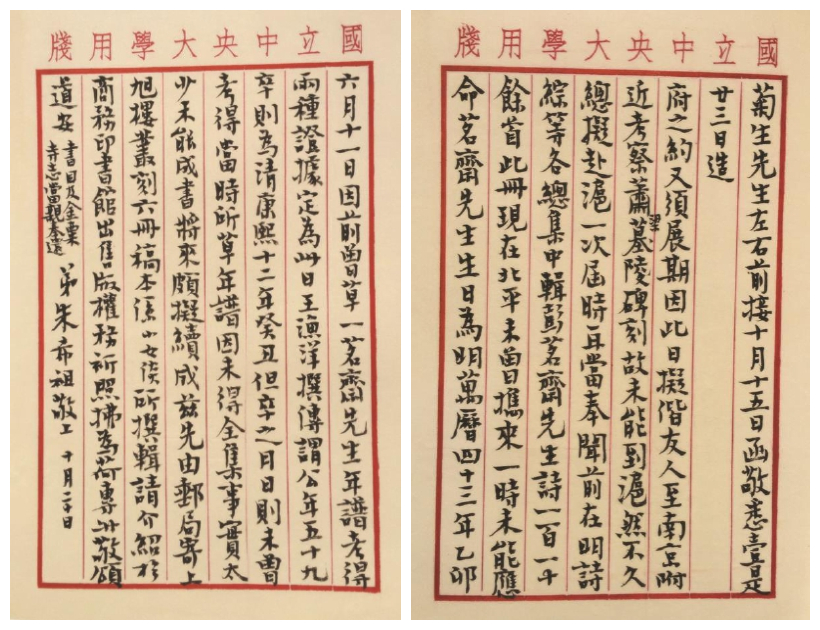 國立中央大學用牋
菊生先生左右前接十月十五日函敬悉壹是
廿三日造
府之約又須展期因此日擬偕友人至南京附
近考察蕭墓陵碑刻故未能到滬然不久
總擬赴滬一次屆時再當奉聞前在明詩
綜等各總集中輯彭茗齋先生詩一百一十
餘首此冊現在北平未曾攜來一時未能應
命茗齋先生生日為明萬曆四十三年乙卯
國立中央大學用牋
六月十一日因前曾草一茗齋先生年譜考得
兩種證據定為此日王漁洋撰傳謂公年五十九
卒則為清康熙十二年癸丑但卒之月日則未曾
考得當時所草年譜因未得全集事實太
少未能成書將來頗擬續成茲先由郵局寄上
旭樓叢刻六冊稿本係小女倓所撰輯請介紹於
商務印書館出售版權務祈照拂為荷專此敬頌
道安 書目及金粟
寺志當親奉還
弟朱希祖敬上 十月二十日